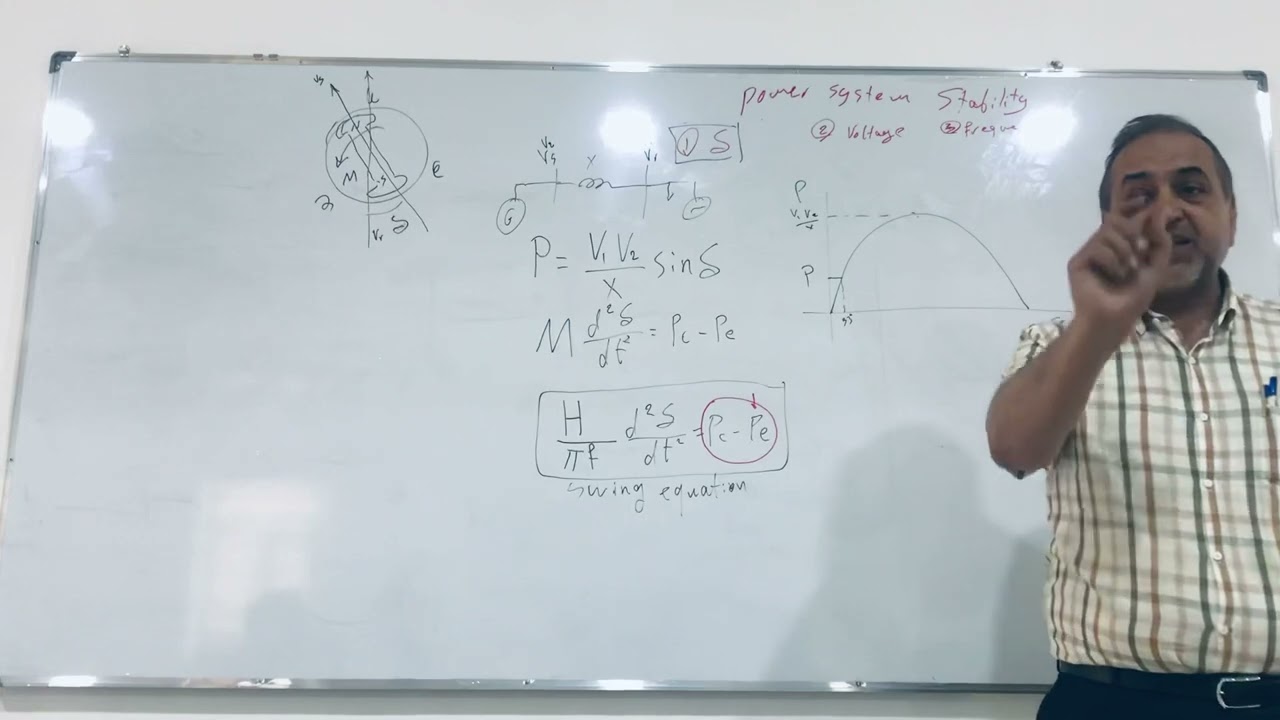 Power system Stability
① δ
② Voltage ③ Freque
V₂
V₁
X
G
M
δ
P = V₁ V₂ / X sin δ
M d²δ/dt² = Pc - Pe
H/πf d²δ/dt² = Pc - Pe
Swing equation
P
V₁ V₂
P